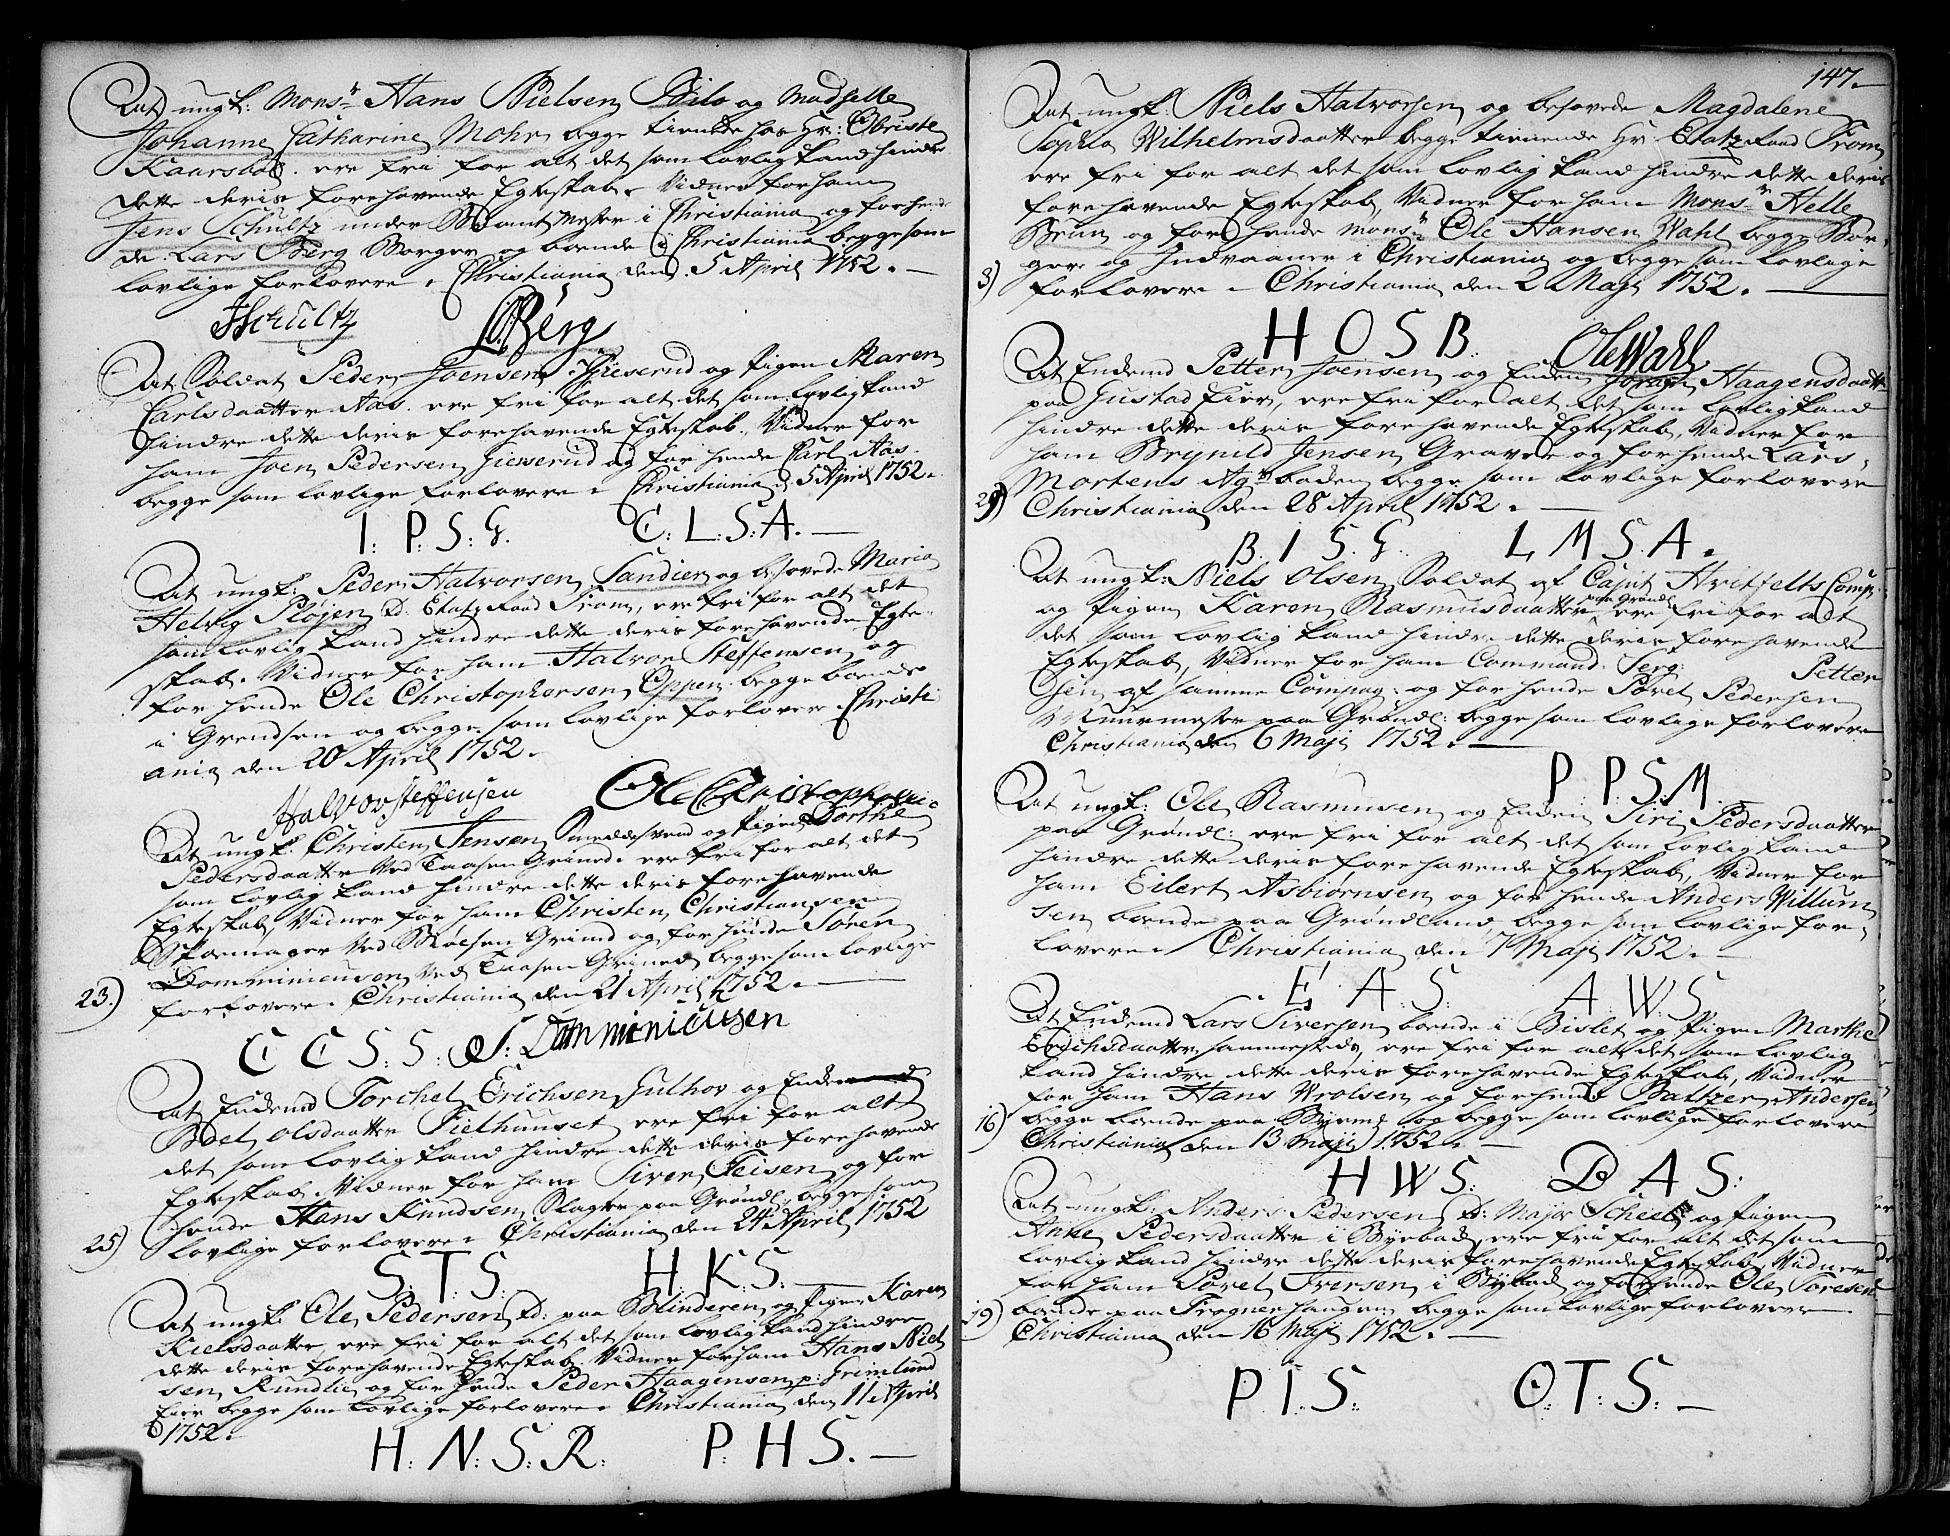 At ungk: Mons:r Hans Nielsen Bilo og Madselle
Johanne Catharine Mohr begge tienede hos Hr: Obriste
Kaarsbøl. ere fri for alt det som lovlig kand hindre
dette deris forehavende Egteskab. Vidner for ham
Jens Schultz under Mester i Christiania og for hen-
de Lars Berg Borger og boende i Christiania begge som
lovlige forlovere. Christiania den 5 April 1752. —
JSchultz LBerg
At Soldat Peder Joensen Gieserud og Pigen Maren
Carlsdaatter Aas. ere fri for alt det som lovlig kand
hindre dette deris forehavende Egteskab., Vidner for
ham Joen Pedersen Gieserud og for hende Carl Aas.
begge som lovlige forlovere. Christiania d: 5 April 1752.
I: P: S: G. C: L: S: A. —
At ungk: Peder Halvorsen Sandier og besovede Maria
Helvig Pløjen d. Etatz Raad From, ere fri for alt det
som lovlig kand hindre dette deris forehavende Egte-
skab. Vidner for ham Halvor Steffensen og
for hende Ole Christophersen Oppen begge boende
i Grendsen og begge som lovlige forlovere Christi
ania den 20 April 1752.
Halvor Steffensen Ole Christophersen
At ungk. Christen Jensen Smedesvend og Pigen Dorthe
Pedersdaatter ved Taasen Grind. ere fri for alt det
som lovlig kand hindre dette deris forehavende
Egteskab, Vidner for ham Christen Christiansen
Skoemager ved Grind og for hende Søren
Domminicusen ved Taasen Grind begge som lovlige
23.) forlovere. Christiania den 21 April 1752. —
C C S: S: S: Domminicusen
At Enkemd Torchel Erichsen Gulhov og Enken
Boel Olsdaatter Fielhuuset ere fri for alt
det som lovlig kand hindre dette deris forehavende
Egteskab. Vidner for ham Siver Teisen og for
hende Hans Knudsen Slagter paa Grøndl: begge som
25) lovlige forlovere. Christiania den 24 April 1752
S: T: S: H: K: S: —
At ungk. Ole Pedersen d: paa Blinderen og Pigen Karen
Kielsdaatter, ere fri for alt det som lovlig kand hindre
dette deris forehavende Egteskab. Vidner for ham Hans Niel
sen Rundlie og for hende Peder Haagensen p: Grimlund
Eier begge som lovlige forlovere. Christiania den 11 April
1752.
H: N: S: R: P: H S. —
147.
At ungk: Niels Halvorsen og besovede Magdalene
Sophia Wilhelmsdaatter begge tienende Hr Etatz Raad From
ere fri for alt det som lovlig kand hindre dette deris
forehavende Egteskab, Vidner for ham Mons:r Helle
Brun og for hende Mons:r Ole Hansen Wahl begge Bor-
gere og Indvaaner i Christiania og begge som lovlige
3) forlovere. Christiania den 2 Maji 1752. —
H O S B. Ole Wahl
At Enkemd Petter Joensen og Enken Joran Haagensdaatter
paa Gustad Eier, ere fri for alt det som lovlig kand
hindre dette deris forehavende Egteskab, Vidner for
ham Brynild Jensen Gravde og for hende Lars
Mortens Ag:rboden begge som lovlige forlovere
29) Christiania den 28 April 1752. —
B. I S. G. L M S. A.
At ungk: Niels Olsen Soldat af Capit Hvitfelts Comp.
og Pigen Karen Rasmusdaatter paa Grøndl ere fri for alt
det som lovlig kand hindre dette deris forehavende
Egteskab, Vidner for ham Command: Serg: Petter
sen af samme Compag: og for hende Povel Pedersen
Muurmester paa Grøndl: begge som lovlige forlovere
Christiania den 6 Maji 1752. —
P. P. S. M.
At ungk: Ole Rasmusen og Enken Siri Pedersdaatter
paa Grøndl: ere fri for alt det som lovlig kand
hindre dette deris forehavende Egteskab, Vidner for
ham Eilert Asbiørnsen og for hende Anders Willum
sen boende paa Grøndland, begge som lovlige for-
lovere. Christiania den 7 Maji 1752. —
E. A. S. A. W. S.
At Enkemd Lars Siversen boende i Bislet og Pigen Marthe
Erichsdaatter sammesteds, ere fri for alt det som lovlig
kand hindre dette deris forehavende Egteskab, Vidner
for ham Hans Wrolsen og for hende Baltzer Andersen
16) begge boende paa Byemd: og begge som lovlige forlovere
Christiania den 13 Maji 1752. —
H W S. B A S:
At ungk: Anders Pedersen d: Major Scheel og Pigen
Anne Pedersdaatter i Byebad, ere fri for alt det som
lovlig kand hindre dette deris forehavende Egteskab, Vidner
for ham Povel Iversen i Byebad og for hende Ole Toresen
19) boende paa Frogner haugen begge som lovlige forlovere
Christiania den 16 Maji 1752. —
P. I. S. O. T: S: —